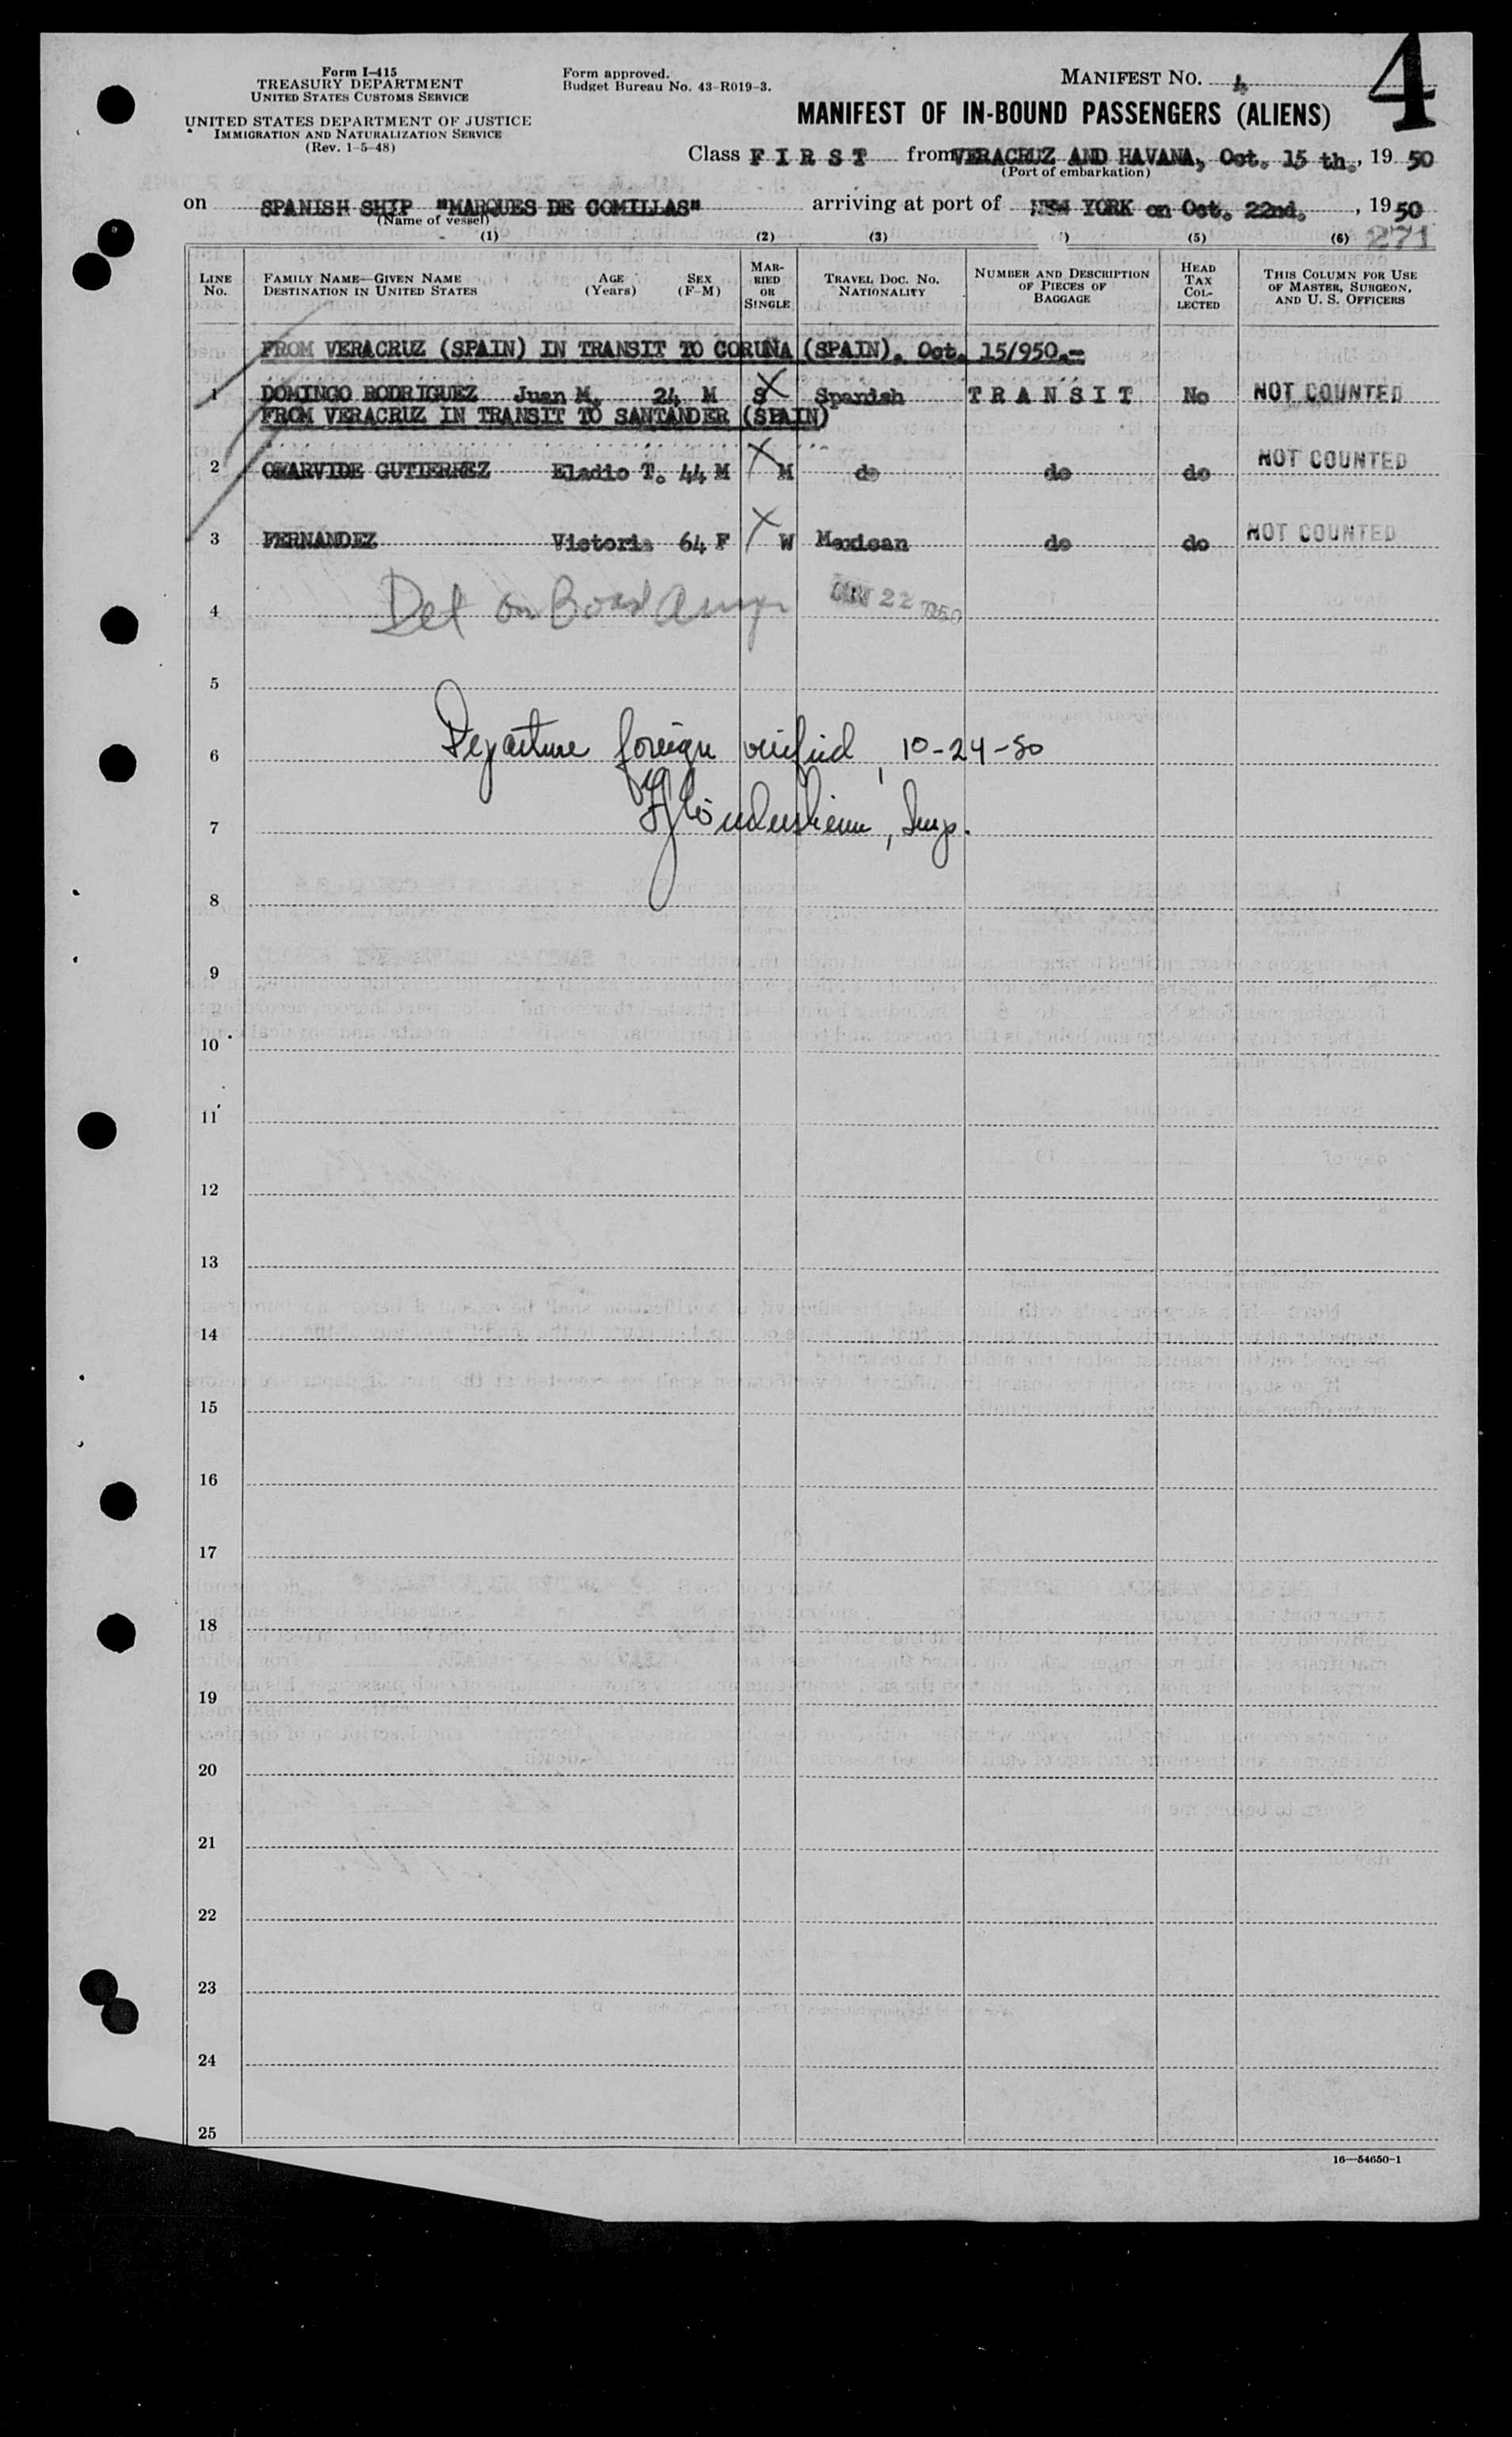 Form I-415
TREASURY DEPARTMENT
UNITED STATES CUSTOMS SERVICE
UNITED STATES DEPARTMENT OF JUSTICE
IMMIGRATION AND NATURALIZATION SERVICE
(Rev. 1-5-48)
Form approved.
Budget Bureau No. 43-R019-3.
MANIFEST NO. 4
4
MANIFEST OF IN-BOUND PASSENGERS (ALIENS)
Class F I R S T from VERACRUZ AND HAVANA, Oct. 15 th., 19 50
(Port of embarkation)
on SPANISH SHIP "MARQUES DE COMILLAS" arriving at port of NEW YORK on Oct. 22nd. , 19 50
(Name of vessel)
271
(1) (2) (3) (5) (6)
LINE No. FAMILY NAME—GIVEN NAME DESTINATION IN UNITED STATES AGE (Years) SEX (F-M) MARRIED OR SINGLE TRAVEL DOC. NO. NATIONALITY NUMBER AND DESCRIPTION OF PIECES OF BAGGAGE HEAD TAX COLLECTED THIS COLUMN FOR USE OF MASTER, SURGEON, AND U. S. OFFICERS
FROM VERACRUZ (SPAIN) IN TRANSIT TO CORUÑA (SPAIN). Oct. 15/950.-
1 DOMINGO RODRIGUEZ Juan M. 24 M S Spanish T R A N S I T No NOT COUNTED
FROM VERACRUZ IN TRANSIT TO SANTANDER (SPAIN)
2 GUTIERREZ Eladio T. 44 M M do do do NOT COUNTED
3 FERNANDEZ Victoria 64 F W Mexican do do NOT COUNTED
4 Det on Board 22 1950
5
6 Departure foreign verified, 10-24-50
7 , Insp.
8
9
10
11
12
13
14
15
16
17
18
19
20
21
22
23
24
25
16—54650-1